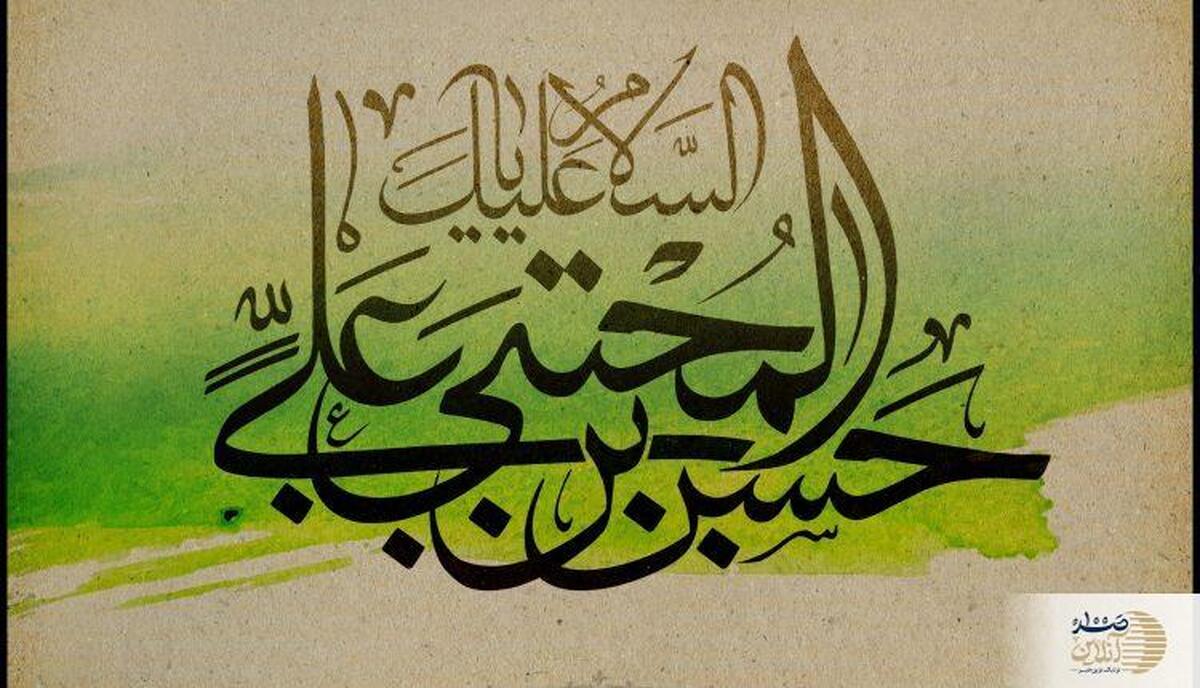 السَّلامُ عَلَیکَ یا
حَسَن بن عَلیٍّ المُجتَبی
صدا
آنلاین